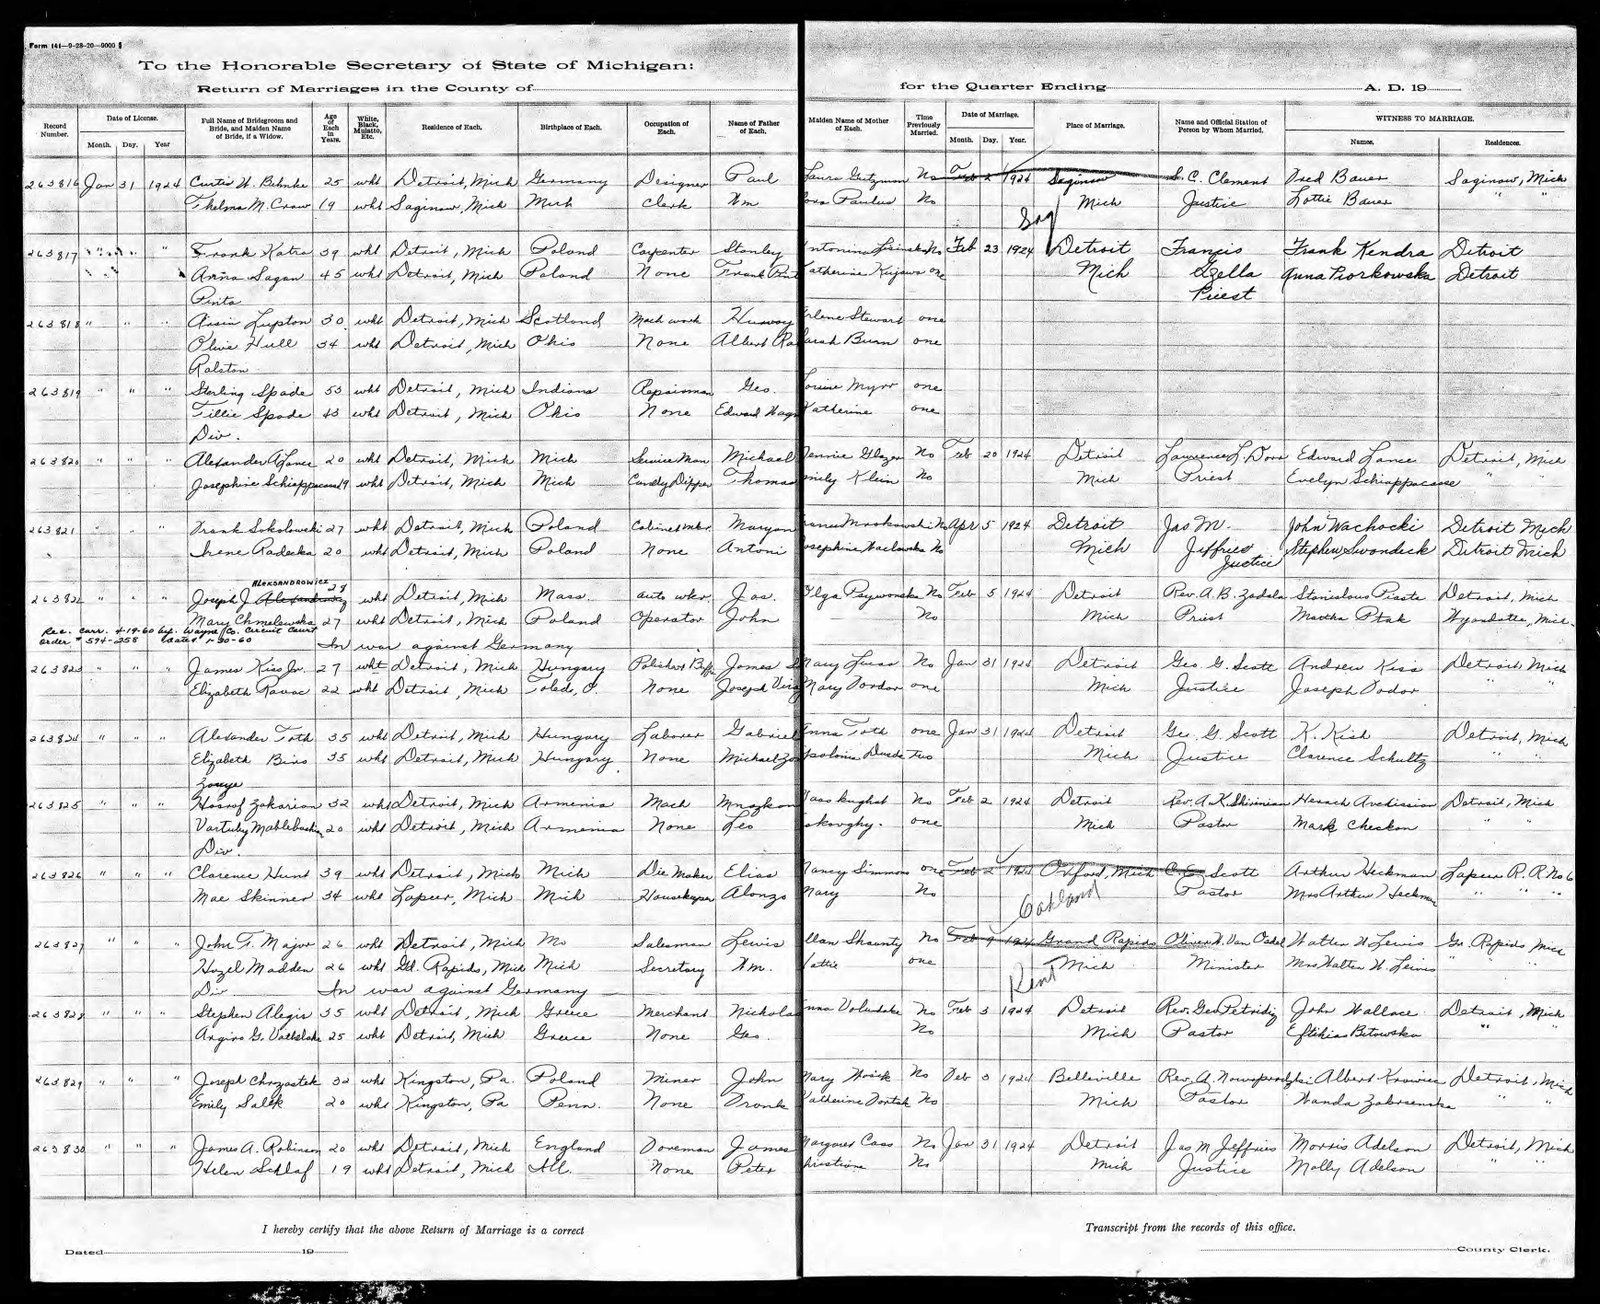 Form 141—9-28-20—9000
To the Honorable Secretary of State of Michigan:
Return of Marriages in the County of
for the Quarter Ending A. D. 19
Record Number. Date of License. Month. Day. Year Full Name of Bridegroom and Bride, and Maiden Name of Bride, if a Widow. Age of Each in Years. White, Black, Mulatto, Etc. Residence of Each. Birthplace of Each. Occupation of Each. Name of Father of Each. Maiden Name of Mother of Each. Time Previously Married. Date of Marriage. Month. Day. Year. Place of Marriage. Name and Official Station of Person by Whom Married. WITNESS TO MARRIAGE. Names. Residences.
263816 Jan 31 1924 Curtis W. Behnke 25 wht Detroit, Mich Germany Designer Paul Laura No Feb 2 1924 Saginaw C. Clement Fred Bauer Saginaw, Mich
Thelma M. Crow 19 wht Saginaw, Mich Mich Clerk Wm Paulus No Mich Justice Lottie Bauer " "
Sag
263817 " " " Frank Katra 39 wht Detroit, Mich Poland Carpenter Stanley No Feb 23 1924 Detroit Francis Frank Kendra Detroit
Anna Sagan 45 wht Detroit, Mich Poland None Frank one Mich Gzella Anna Piorkowska Detroit
Penta Priest
263818 " " " Lupton 30 wht Detroit, Mich Scotland Mach work Stewart one
Olive Hull 34 wht Detroit, Mich Ohio None Albert Burn one
Ralston
263819 " " " Sterling Spade 53 wht Detroit, Mich Indiana Repairman Geo. one
Tillie Spade 43 wht Detroit, Mich Ohio None Edward Katherine one
Div.
263820 " " " Alexander A Lance 20 wht Detroit, Mich Mich Service Man Michael Jennie Glazer No Feb 20 1924 Detroit Lawrence L. Edward Lance Detroit, Mich
Josephine Schiappacasse 19 wht Detroit, Mich Mich Candy Dipper Thomas Emily Klein No Mich Priest Evelyn Schiappacasse " "
263821 " " " Frank Sokolowski 27 wht Detroit, Mich Poland Cabinet mkr. Maryan No Apr 5 1924 Detroit Jas M. John Wachocki Detroit Mich
Irene Radecka 20 wht Detroit, Mich Poland None Antoni Josephine No Mich Jeffries Stephen Swondeck Detroit Mich
Justice
ALEKSANDROWICZ 28
263822 " " " Joseph J. wht Detroit, Mich Mass. auto wkr. Jas. Olga No Feb 5 1924 Detroit Rev. A. B. Zadala Stanislaus Detroit, Mich
Mary Chmelewska 27 wht Detroit, Mich Poland Operator John — No Mich Priest Martha Ptak Wyandotte, Mich.
Rec. Corr. 4-19-60 Wayne Co. Circuit Court
Order # 594-258 Dated 1-20-60 In war against Germany
263823 " " " James Kiss Jr. 27 wht Detroit, Mich Hungary James Mary No Jan 31 1924 Detroit Geo. G. Scott Andrew Kiss Detroit Mich
Elizabeth 22 wht Detroit, Mich Toledo, O. None Joseph Mary one Mich Justice Joseph " "
263824 " " " Alexander Toth 35 wht Detroit, Mich Hungary Laborer Gabriel Anna Toth one Jan 31 1924 Detroit Geo. G. Scott K. Kish Detroit, Mich
Elizabeth Biro 35 wht Detroit, Mich Hungary None Michael two Mich Justice Clarence Schultz " "
263825 " " " Zakarian 32 wht Detroit, Mich Armenia Mach No Feb 2 1924 Detroit Rev. A. K. Shirinian Avedissian Detroit, Mich
20 wht Detroit, Mich Armenia None Leo one Mich Pastor Mark Checkon " "
Div.
263826 " " " Clarence Hunt 39 wht Detroit, Mich Mich Die Maker Elias Nancy Simmons one Feb 2 1924 Oxford, Mich C. E. Scott Arthur Heckman Lapeer R. R. No 6
Mae Skinner 34 wht Lapeer, Mich Mich Housekeeper Alonzo Mary No Pastor Mrs Arthur Heckman " " "
Oakland
263827 " " " John F. Major 26 wht Detroit, Mich Mo Salesman Lewis Shaunty No Feb 9 1924 Grand Rapids Oliver W. Van Walter W Lewis Gr. Rapids Mich
Hazel Madden 26 wht Gd. Rapids, Mich Mich Secretary Wm. Hattie one Mich Minister Mrs Walter W Lewis " " "
Div In war against Germany Kent
263828 " " " Stephen Alegis 35 wht Detroit, Mich Greece Merchant Nicholas Anna No Feb 3 1924 Detroit Rev. Geo Petridiz John Wallace Detroit, Mich
Argiro G. 25 wht Detroit, Mich Greece None Geo. No Mich Pastor " "
263829 " " " Joseph Chrzastek 32 wht Kingston, Pa. Poland Miner John Mary No Feb 3 1924 Belleville Rev. A. Albert Detroit, Mich
Emily Salek 20 wht Kingston, Pa Penn. None Frank Katherine No Mich Pastor Wanda " "
263830 " " " James A. Robinson 20 wht Detroit, Mich England Doorman James Margaret Cass No Jan 31 1924 Detroit Jas M Jeffries Morris Adelson Detroit, Mich
Helen Schlaf 19 wht Detroit, Mich Ill. None Peter Christine No Mich Justice Molly Adelson " "
I hereby certify that the above Return of Marriage is a correct Transcript from the records of this office.
Dated 19 County Clerk.